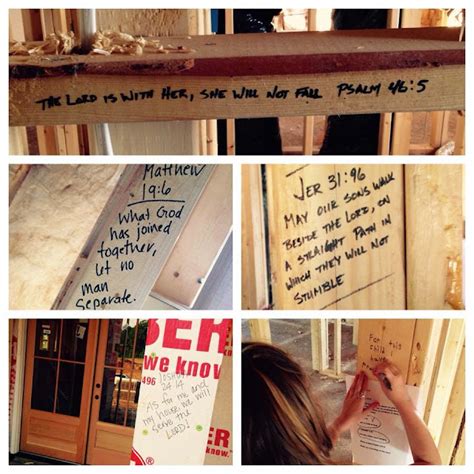 THE LORD IS WITH HER, SHE WILL NOT FALL PSALM 46:5
Matthew
19:6
What God
has joined
together,
let no
man
separate.
JER 31:96
MAY OUR SONS WALK
BESIDE THE LORD, ON
A STRAIGHT PATH IN
WHICH THEY WILL NOT
STUMBLE
BER
we know
496
Joshua
24:14
As for me and
my house we will
serve the
LORD!
For this
child
have